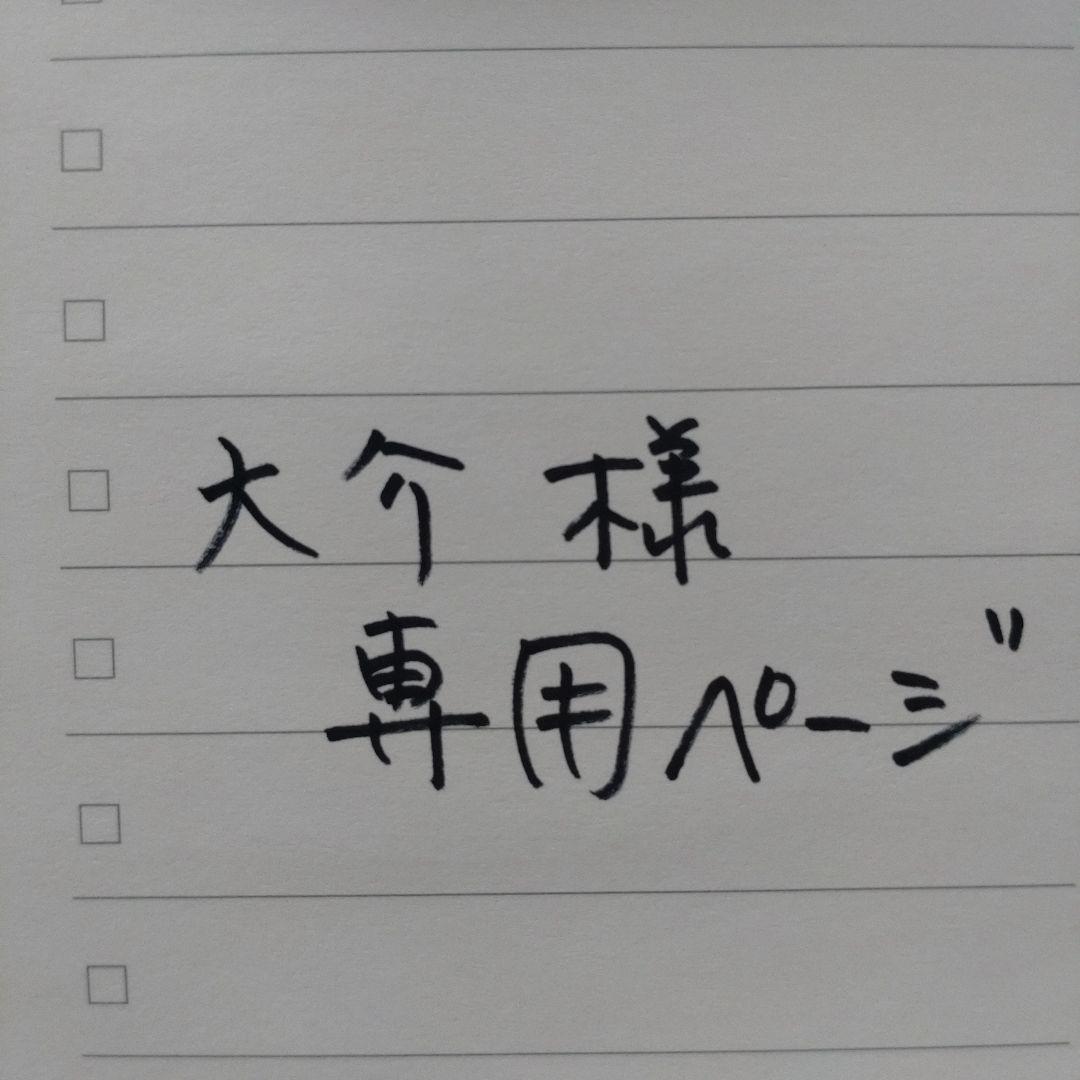 大介 様
専用ページ